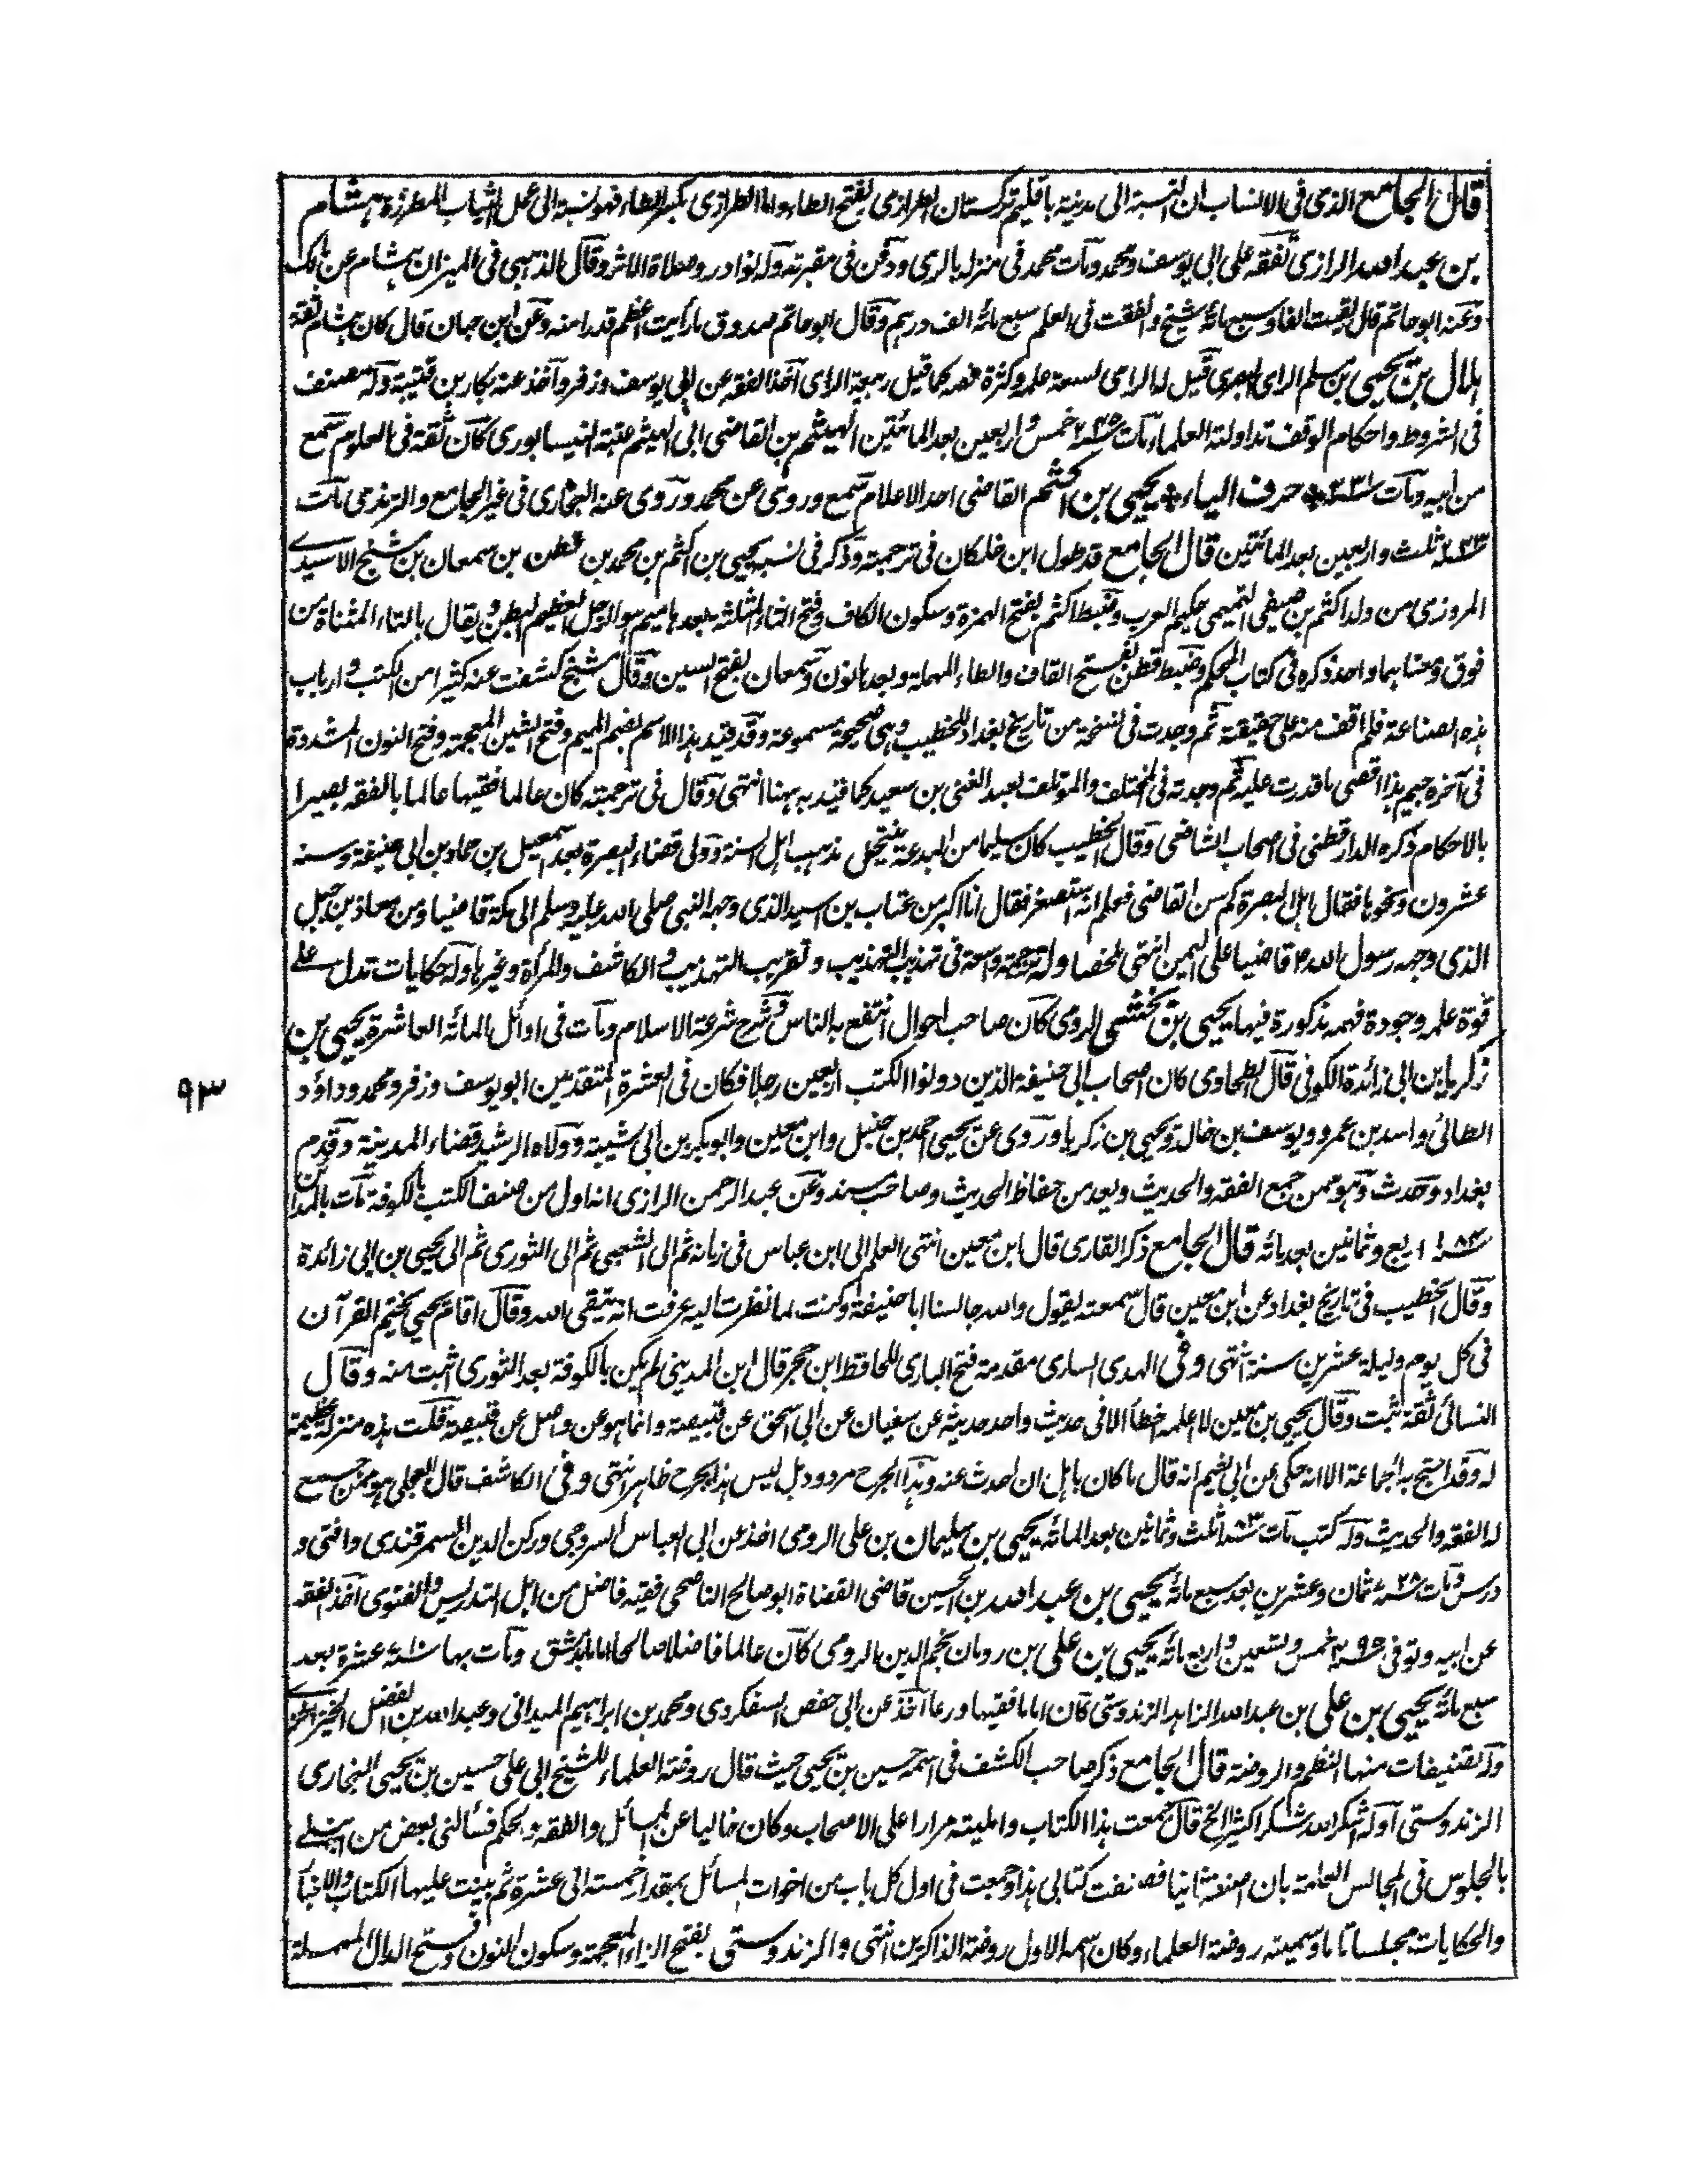 قال الجامع الذى فى الانساب ان النسبة الى مدينة باقليم تركستان الطرازى بفتح الطاء واما الطرازى بكسر الطاء فهو نسبة الى عمل الثياب المطرزة هشام
بن عبد الله الرازى تفقه على ابى يوسف ومحمد ومات محمد فى منزله بالرى ودفن فى مقبرته وله نوادر وصلاة الاثر وقال الذهبى فى الميزان هشام عن مالك
وعنه ابو حاتم قال لقيت الفا وسبع مائة شيخ وانفقت فى العلم سبع مائة الف درهم وقال ابو حاتم صدوق ما رأيت اعظم قدرا منه وعن ابن حبان قال كان هشام ثقة
هلال بن يحيى بن مسلم الراى البصرى قيل له الراى لسعة علمه وكثرة فهمه كما قيل ربيعة الراى اخذ الفقه عن ابى يوسف وزفر واخذ عنه بكار بن قتيبة وله مصنف
فى الشروط واحكام الوقف تداولته العلماء مات سنة ٢٤٥ خمس واربعين بعد المائتين الهيثم بن القاضى ابى الهيثم عتبة النيسابورى كان ثقة فى العلوم سمع
من ابيه ومات سنة ٤٣١ * حرف الياء * يحيى بن اكثم القاضى احد الاعلام سمع وروى عن محمد وروى عنه البخارى فى غير الجامع والترمذى مات
سنة ٢٤٣ ثلث واربعين بعد المائتين قال الجامع قد طول ابن خلكان فى ترجمته وذكر فى نسبه يحيى بن اكثم بن محمد بن قطن بن سمعان بن مشنج الاسيدى
المروزى من ولد اكثم بن صيفى التميمى حكيم العرب وضبط اكثم بفتح الهمزة وسكون الكاف وفتح الثاء المثلثة بعدها ميم هو الرجل العظيم البطن ويقال بالتاء المثناة من
فوق ومعناهما واحد ذكره فى كتاب المحكم وضبط قطن بفتح القاف والطاء المهملة وبعدها نون وسمعان بفتح السين وقال مشنج كشفت عنه كثيرا من الكتب وارباب
هذه الصناعة فلم اقف منه على حقيقة ثم وجدت فى نسخة من تاريخ بغداد للخطيب وهى صحيحة مسموعة وقد قيد هذا الاسم بضم الميم وفتح الشين المعجمة وفتح النون المشددة
فى آخره جيم هذا اقصى ما قدرت عليه ثم وجدته فى المختلف والمؤتلف لعبد الغنى بن سعيد كما قيد به ههنا انتهى وقال فى ترجمته كان عالما فقيها عالما بالفقه بصيرا
بالاحكام ذكره الدارقطنى فى اصحاب الشافعى وقال الخطيب كان سليما من البدعة ينتحل مذهب اهل السنة وولى قضاء البصرة بعد اسمعيل بن حماد بن ابى حنيفة وسنه
عشرون ونحوها فقال اهل البصرة كم سن القاضى فعلم انه استصغر فقال انا اكبر من عتاب بن اسيد الذى وجهه النبى صلى الله عليه وسلم الى مكة قاضيا ومن معاذ بن جبل
الذى وجهه رسول الله ص قاضيا على اليمن انتهى ملخصا وله ترجمة واسعة فى تهذيب التهذيب وتقريب التهذيب والكاشف والمرآة وغيرها وله حكايات تدل على
قوة علمه وجودة فهمه مذكورة فيها يحيى بن بخشى الرومى كان صاحب احوال انتفع به الناس وشرح شرعة الاسلام ومات فى اوائل المائة العاشرة يحيى بن
زكريا بن ابى زائدة الكوفى قال الطحاوى كان اصحاب ابى حنيفة الذين دونوا الكتب اربعين رجلا فكان فى العشرة المتقدمين ابو يوسف وزفر ومحمد وداؤد
الطائى واسد بن عمرو ويوسف بن خالد ويحيى بن زكريا وروى عن يحيى احمد بن حنبل وابن معين وابو بكر بن ابى شيبة وولاه الرشيد قضاء المدينة وقدم
بغداد وحدث وهو ممن جمع الفقه والحديث ويعد من حفاظ الحديث وصاحب مسند وعن عبد الرحمن الرازى انه اول من صنف الكتب بالكوفة مات بالمدائن
سنة ١٨٤ اربع وثمانين بعد مائة قال الجامع ذكر القارى قال ابن معين انتهى العلم الى ابن عباس فى زمانه ثم الى الشعبى ثم الى الثورى ثم الى يحيى بن ابى زائدة
وقال الخطيب فى تاريخ بغداد عن ابن معين قال سمعته يقول والله جالسنا ابا حنيفة وكنت لما نظرت اليه عرفت انه يتقى الله وقال اقام يحيى يختم القرآن
فى كل يوم وليلة عشرين سنة انتهى وفى الهدى السارى مقدمة فتح البارى للحافظ ابن حجر قال ابن المدينى لم يكن بالكوفة بعد الثورى اثبت منه وقال
النسائى ثقة ثبت وقال يحيى بن معين لا اعلمه خطأ الا فى حديث واحد حديثه عن سفيان عن ابى اسحق عن قبيصة وانما هو عن واصل عن قبيصة قلت هذه منزلة عظيمة
له وقد احتج به الجماعة الا انه حكى عن ابى نعيم انه قال ما كان باهل ان احدث عنه وهذا الجرح مردود بل ليس هذا بجرح ظاهر انتهى وفى الكاشف قال العجلى هو ممن جمع
له الفقه والحديث وله كتب مات سنة ١٨٣ ثلث وثمانين بعد المائة يحيى بن سليمان بن على الرومى اخذ عن ابى العباس السروجى وركن الدين السمرقندى وافتى و
درس ومات سنة ٧٢٨ ثمان وعشرين بعد سبع مائة يحيى بن عبد الله بن الحسين قاضى القضاة ابو صالح الناصحى فقيه فاضل من اهل التدريس والفتوى اخذ الفقه
عن ابيه وتوفى سنة ٤٩٥ خمس وتسعين واربع مائة يحيى بن على بن رومان نجم الدين الرومى كان عالما فاضلا صالحا اماما بدمشق ومات بها سنة عشرة بعد
سبع مائة يحيى بن على بن عبد الله الزاهد الزندوستى كان اماما فقيها ورعا اخذ عن ابى حفص السفكردى ومحمد بن ابراهيم الميدانى وعبد الله بن الفضل الخيزاخزى
وله تصنيفات منها النظم والروضة قال الجامع ذكر صاحب الكشف فى اسمه حسين بن يحيى حيث قال روضة العلماء للشيخ ابى على حسين بن يحيى البخارى
الزندوستى اوله اشكر الله شكرا كثيرا الخ قال جمعت هذا الكتاب وامليته مرارا على الاصحاب وكان خاليا عن المسائل والفقه والحكم فسألنى بعض من
بالجلوس فى المجالس العامة بان اصنفه ثانيا فصنفت كتابى هذا وجمعت فى اول كل باب من اخوات المسائل بمقدار خمسة الى عشرة ثم بينت عليها الكتاب والاخبار
والحكايات مجلسا تاما وسميته روضة العلماء وكان اسمه الاول روضة الذاكرين انتهى والزندوستى بفتح الزاء المعجمة وسكون النون وفتح الدال المهملة
٩٣